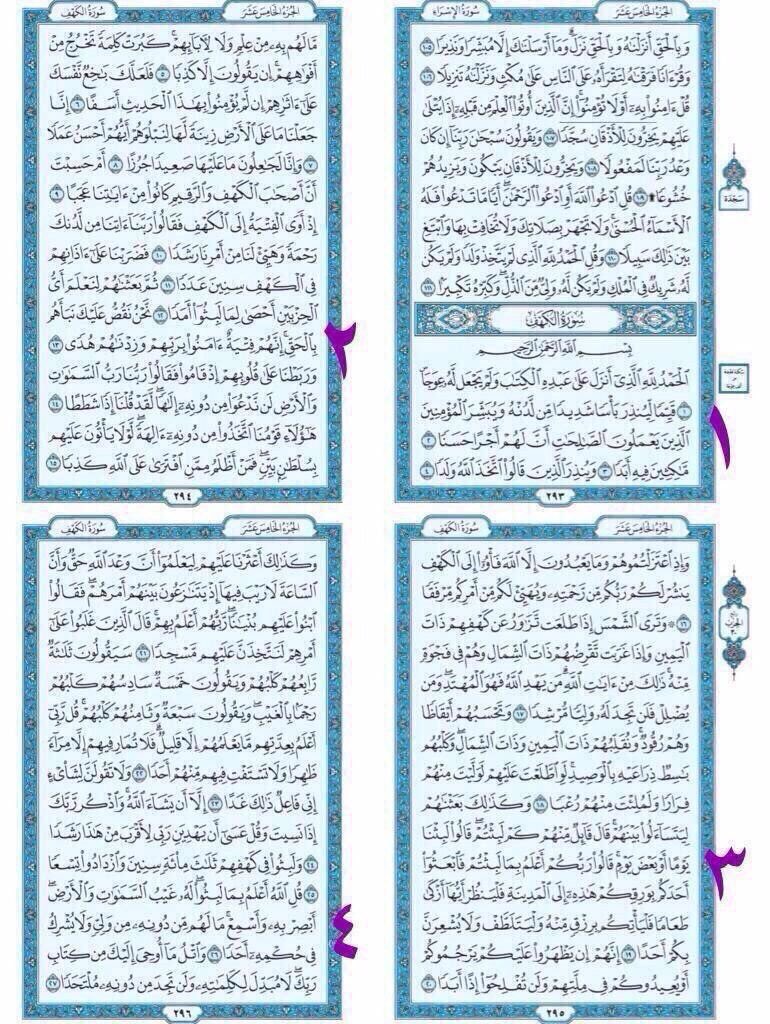 الجزء الخامس عشر
سورة الإسراء
وَبِالْحَقِّ أَنزَلْنَاهُ وَبِالْحَقِّ نَزَلَ وَمَا أَرْسَلْنَاكَ إِلَّا مُبَشِّرًا وَنَذِيرًا ١٠٥
وَقُرْءَانًا فَرَقْنَاهُ لِتَقْرَأَهُ عَلَى النَّاسِ عَلَىٰ مُكْثٍ وَنَزَّلْنَاهُ تَنزِيلًا ١٠٦
قُلْ ءَامِنُوا بِهِ أَوْ لَا تُؤْمِنُوا إِنَّ الَّذِينَ أُوتُوا الْعِلْمَ مِن قَبْلِهِ إِذَا يُتْلَىٰ
عَلَيْهِمْ يَخِرُّونَ لِلْأَذْقَانِ سُجَّدًا ١٠٧ وَيَقُولُونَ سُبْحَانَ رَبِّنَا إِن كَانَ
وَعْدُ رَبِّنَا لَمَفْعُولًا ١٠٨ وَيَخِرُّونَ لِلْأَذْقَانِ يَبْكُونَ وَيَزِيدُهُمْ
خُشُوعًا ۩ ١٠٩ قُلِ ادْعُوا اللَّهَ أَوِ ادْعُوا الرَّحْمَٰنَ أَيًّا مَّا تَدْعُوا فَلَهُ
الْأَسْمَاءُ الْحُسْنَىٰ وَلَا تَجْهَرْ بِصَلَاتِكَ وَلَا تُخَافِتْ بِهَا وَابْتَغِ
بَيْنَ ذَٰلِكَ سَبِيلًا ١١٠ وَقُلِ الْحَمْدُ لِلَّهِ الَّذِي لَمْ يَتَّخِذْ وَلَدًا وَلَمْ يَكُن
لَّهُ شَرِيكٌ فِي الْمُلْكِ وَلَمْ يَكُن لَّهُ وَلِيٌّ مِّنَ الذُّلِّ وَكَبِّرْهُ تَكْبِيرًا ١١١
سُورَةُ الْكَهْفِ
بِسْمِ اللَّهِ الرَّحْمَٰنِ الرَّحِيمِ
الْحَمْدُ لِلَّهِ الَّذِي أَنزَلَ عَلَىٰ عَبْدِهِ الْكِتَابَ وَلَمْ يَجْعَل لَّهُ عِوَجَا
١ قَيِّمًا لِّيُنذِرَ بَأْسًا شَدِيدًا مِّن لَّدُنْهُ وَيُبَشِّرَ الْمُؤْمِنِينَ
الَّذِينَ يَعْمَلُونَ الصَّالِحَاتِ أَنَّ لَهُمْ أَجْرًا حَسَنًا ٢
مَّاكِثِينَ فِيهِ أَبَدًا ٣ وَيُنذِرَ الَّذِينَ قَالُوا اتَّخَذَ اللَّهُ وَلَدًا ٤
٢٩٣
سجدة
١
الجزء الخامس عشر
سورة الكهف
مَّا لَهُم بِهِ مِنْ عِلْمٍ وَلَا لِآبَائِهِمْ كَبُرَتْ كَلِمَةً تَخْرُجُ مِنْ
أَفْوَاهِهِمْ إِن يَقُولُونَ إِلَّا كَذِبًا ٥ فَلَعَلَّكَ بَاخِعٌ نَّفْسَكَ
عَلَىٰ ءَاثَارِهِمْ إِن لَّمْ يُؤْمِنُوا بِهَٰذَا الْحَدِيثِ أَسَفًا ٦ إِنَّا
جَعَلْنَا مَا عَلَى الْأَرْضِ زِينَةً لَّهَا لِنَبْلُوَهُمْ أَيُّهُمْ أَحْسَنُ عَمَلًا
٧ وَإِنَّا لَجَاعِلُونَ مَا عَلَيْهَا صَعِيدًا جُرُزًا ٨ أَمْ حَسِبْتَ
أَنَّ أَصْحَابَ الْكَهْفِ وَالرَّقِيمِ كَانُوا مِنْ ءَايَاتِنَا عَجَبًا ٩
إِذْ أَوَى الْفِتْيَةُ إِلَى الْكَهْفِ فَقَالُوا رَبَّنَا ءَاتِنَا مِن لَّدُنكَ
رَحْمَةً وَهَيِّئْ لَنَا مِنْ أَمْرِنَا رَشَدًا ١٠ فَضَرَبْنَا عَلَىٰ ءَاذَانِهِمْ
فِي الْكَهْفِ سِنِينَ عَدَدًا ١١ ثُمَّ بَعَثْنَاهُمْ لِنَعْلَمَ أَيُّ
الْحِزْبَيْنِ أَحْصَىٰ لِمَا لَبِثُوا أَمَدًا ١٢ نَّحْنُ نَقُصُّ عَلَيْكَ نَبَأَهُم
بِالْحَقِّ إِنَّهُمْ فِتْيَةٌ ءَامَنُوا بِرَبِّهِمْ وَزِدْنَاهُمْ هُدًى ١٣
وَرَبَطْنَا عَلَىٰ قُلُوبِهِمْ إِذْ قَامُوا فَقَالُوا رَبُّنَا رَبُّ السَّمَاوَاتِ
وَالْأَرْضِ لَن نَّدْعُوَا مِن دُونِهِ إِلَٰهًا لَّقَدْ قُلْنَا إِذًا شَطَطًا ١٤
هَٰؤُلَاءِ قَوْمُنَا اتَّخَذُوا مِن دُونِهِ ءَالِهَةً لَّوْلَا يَأْتُونَ عَلَيْهِم
بِسُلْطَانٍ بَيِّنٍ فَمَنْ أَظْلَمُ مِمَّنِ افْتَرَىٰ عَلَى اللَّهِ كَذِبًا ١٥
٢٩٤
٢
الجزء الخامس عشر
سورة الكهف
وَإِذِ اعْتَزَلْتُمُوهُمْ وَمَا يَعْبُدُونَ إِلَّا اللَّهَ فَأْوُوا إِلَى الْكَهْفِ
يَنشُرْ لَكُمْ رَبُّكُم مِّن رَّحْمَتِهِ وَيُهَيِّئْ لَكُم مِّنْ أَمْرِكُم مِّرْفَقًا
١٦ ۞ وَتَرَى الشَّمْسَ إِذَا طَلَعَت تَّزَاوَرُ عَن كَهْفِهِمْ ذَاتَ
الْيَمِينِ وَإِذَا غَرَبَت تَّقْرِضُهُمْ ذَاتَ الشِّمَالِ وَهُمْ فِي فَجْوَةٍ
مِّنْهُ ذَٰلِكَ مِنْ ءَايَاتِ اللَّهِ مَن يَهْدِ اللَّهُ فَهُوَ الْمُهْتَدِ وَمَن
يُضْلِلْ فَلَن تَجِدَ لَهُ وَلِيًّا مُّرْشِدًا ١٧ وَتَحْسَبُهُمْ أَيْقَاظًا
وَهُمْ رُقُودٌ وَنُقَلِّبُهُمْ ذَاتَ الْيَمِينِ وَذَاتَ الشِّمَالِ وَكَلْبُهُم
بَاسِطٌ ذِرَاعَيْهِ بِالْوَصِيدِ لَوِ اطَّلَعْتَ عَلَيْهِمْ لَوَلَّيْتَ مِنْهُمْ
فِرَارًا وَلَمُلِئْتَ مِنْهُمْ رُعْبًا ١٨ وَكَذَٰلِكَ بَعَثْنَاهُمْ
لِيَتَسَاءَلُوا بَيْنَهُمْ قَالَ قَائِلٌ مِّنْهُمْ كَمْ لَبِثْتُمْ قَالُوا لَبِثْنَا
يَوْمًا أَوْ بَعْضَ يَوْمٍ قَالُوا رَبُّكُمْ أَعْلَمُ بِمَا لَبِثْتُمْ فَابْعَثُوا
أَحَدَكُم بِوَرِقِكُمْ هَٰذِهِ إِلَى الْمَدِينَةِ فَلْيَنظُرْ أَيُّهَا أَزْكَىٰ
طَعَامًا فَلْيَأْتِكُم بِرِزْقٍ مِّنْهُ وَلْيَتَلَطَّفْ وَلَا يُشْعِرَنَّ
بِكُمْ أَحَدًا ١٩ إِنَّهُمْ إِن يَظْهَرُوا عَلَيْكُمْ يَرْجُمُوكُمْ
أَوْ يُعِيدُوكُمْ فِي مِلَّتِهِمْ وَلَن تُفْلِحُوا إِذًا أَبَدًا ٢٠
٢٩٥
٣
الجزء الخامس عشر
سورة الكهف
وَكَذَٰلِكَ أَعْثَرْنَا عَلَيْهِمْ لِيَعْلَمُوا أَنَّ وَعْدَ اللَّهِ حَقٌّ وَأَنَّ
السَّاعَةَ لَا رَيْبَ فِيهَا إِذْ يَتَنَازَعُونَ بَيْنَهُمْ أَمْرَهُمْ فَقَالُوا
ابْنُوا عَلَيْهِم بُنْيَانًا رَّبُّهُمْ أَعْلَمُ بِهِمْ قَالَ الَّذِينَ غَلَبُوا عَلَىٰ
أَمْرِهِمْ لَنَتَّخِذَنَّ عَلَيْهِم مَّسْجِدًا ٢١ سَيَقُولُونَ ثَلَاثَةٌ
رَّابِعُهُمْ كَلْبُهُمْ وَيَقُولُونَ خَمْسَةٌ سَادِسُهُمْ كَلْبُهُمْ
رَجْمًا بِالْغَيْبِ وَيَقُولُونَ سَبْعَةٌ وَثَامِنُهُمْ كَلْبُهُمْ قُل رَّبِّي
أَعْلَمُ بِعِدَّتِهِم مَّا يَعْلَمُهُمْ إِلَّا قَلِيلٌ فَلَا تُمَارِ فِيهِمْ إِلَّا مِرَاءً
ظَاهِرًا وَلَا تَسْتَفْتِ فِيهِم مِّنْهُمْ أَحَدًا ٢٢ وَلَا تَقُولَنَّ لِشَايْءٍ
إِنِّي فَاعِلٌ ذَٰلِكَ غَدًا ٢٣ إِلَّا أَن يَشَاءَ اللَّهُ وَاذْكُر رَّبَّكَ
إِذَا نَسِيتَ وَقُلْ عَسَىٰ أَن يَهْدِيَنِ رَبِّي لِأَقْرَبَ مِنْ هَٰذَا رَشَدًا
٢٤ وَلَبِثُوا فِي كَهْفِهِمْ ثَلَاثَ مِائَةٍ سِنِينَ وَازْدَادُوا تِسْعًا
٢٥ قُلِ اللَّهُ أَعْلَمُ بِمَا لَبِثُوا لَهُ غَيْبُ السَّمَاوَاتِ وَالْأَرْضِ
أَبْصِرْ بِهِ وَأَسْمِعْ مَا لَهُم مِّن دُونِهِ مِن وَلِيٍّ وَلَا يُشْرِكُ
فِي حُكْمِهِ أَحَدًا ٢٦ وَاتْلُ مَا أُوحِيَ إِلَيْكَ مِن كِتَابِ
رَبِّكَ لَا مُبَدِّلَ لِكَلِمَاتِهِ وَلَن تَجِدَ مِن دُونِهِ مُلْتَحَدًا ٢٧
٢٩٦
٤